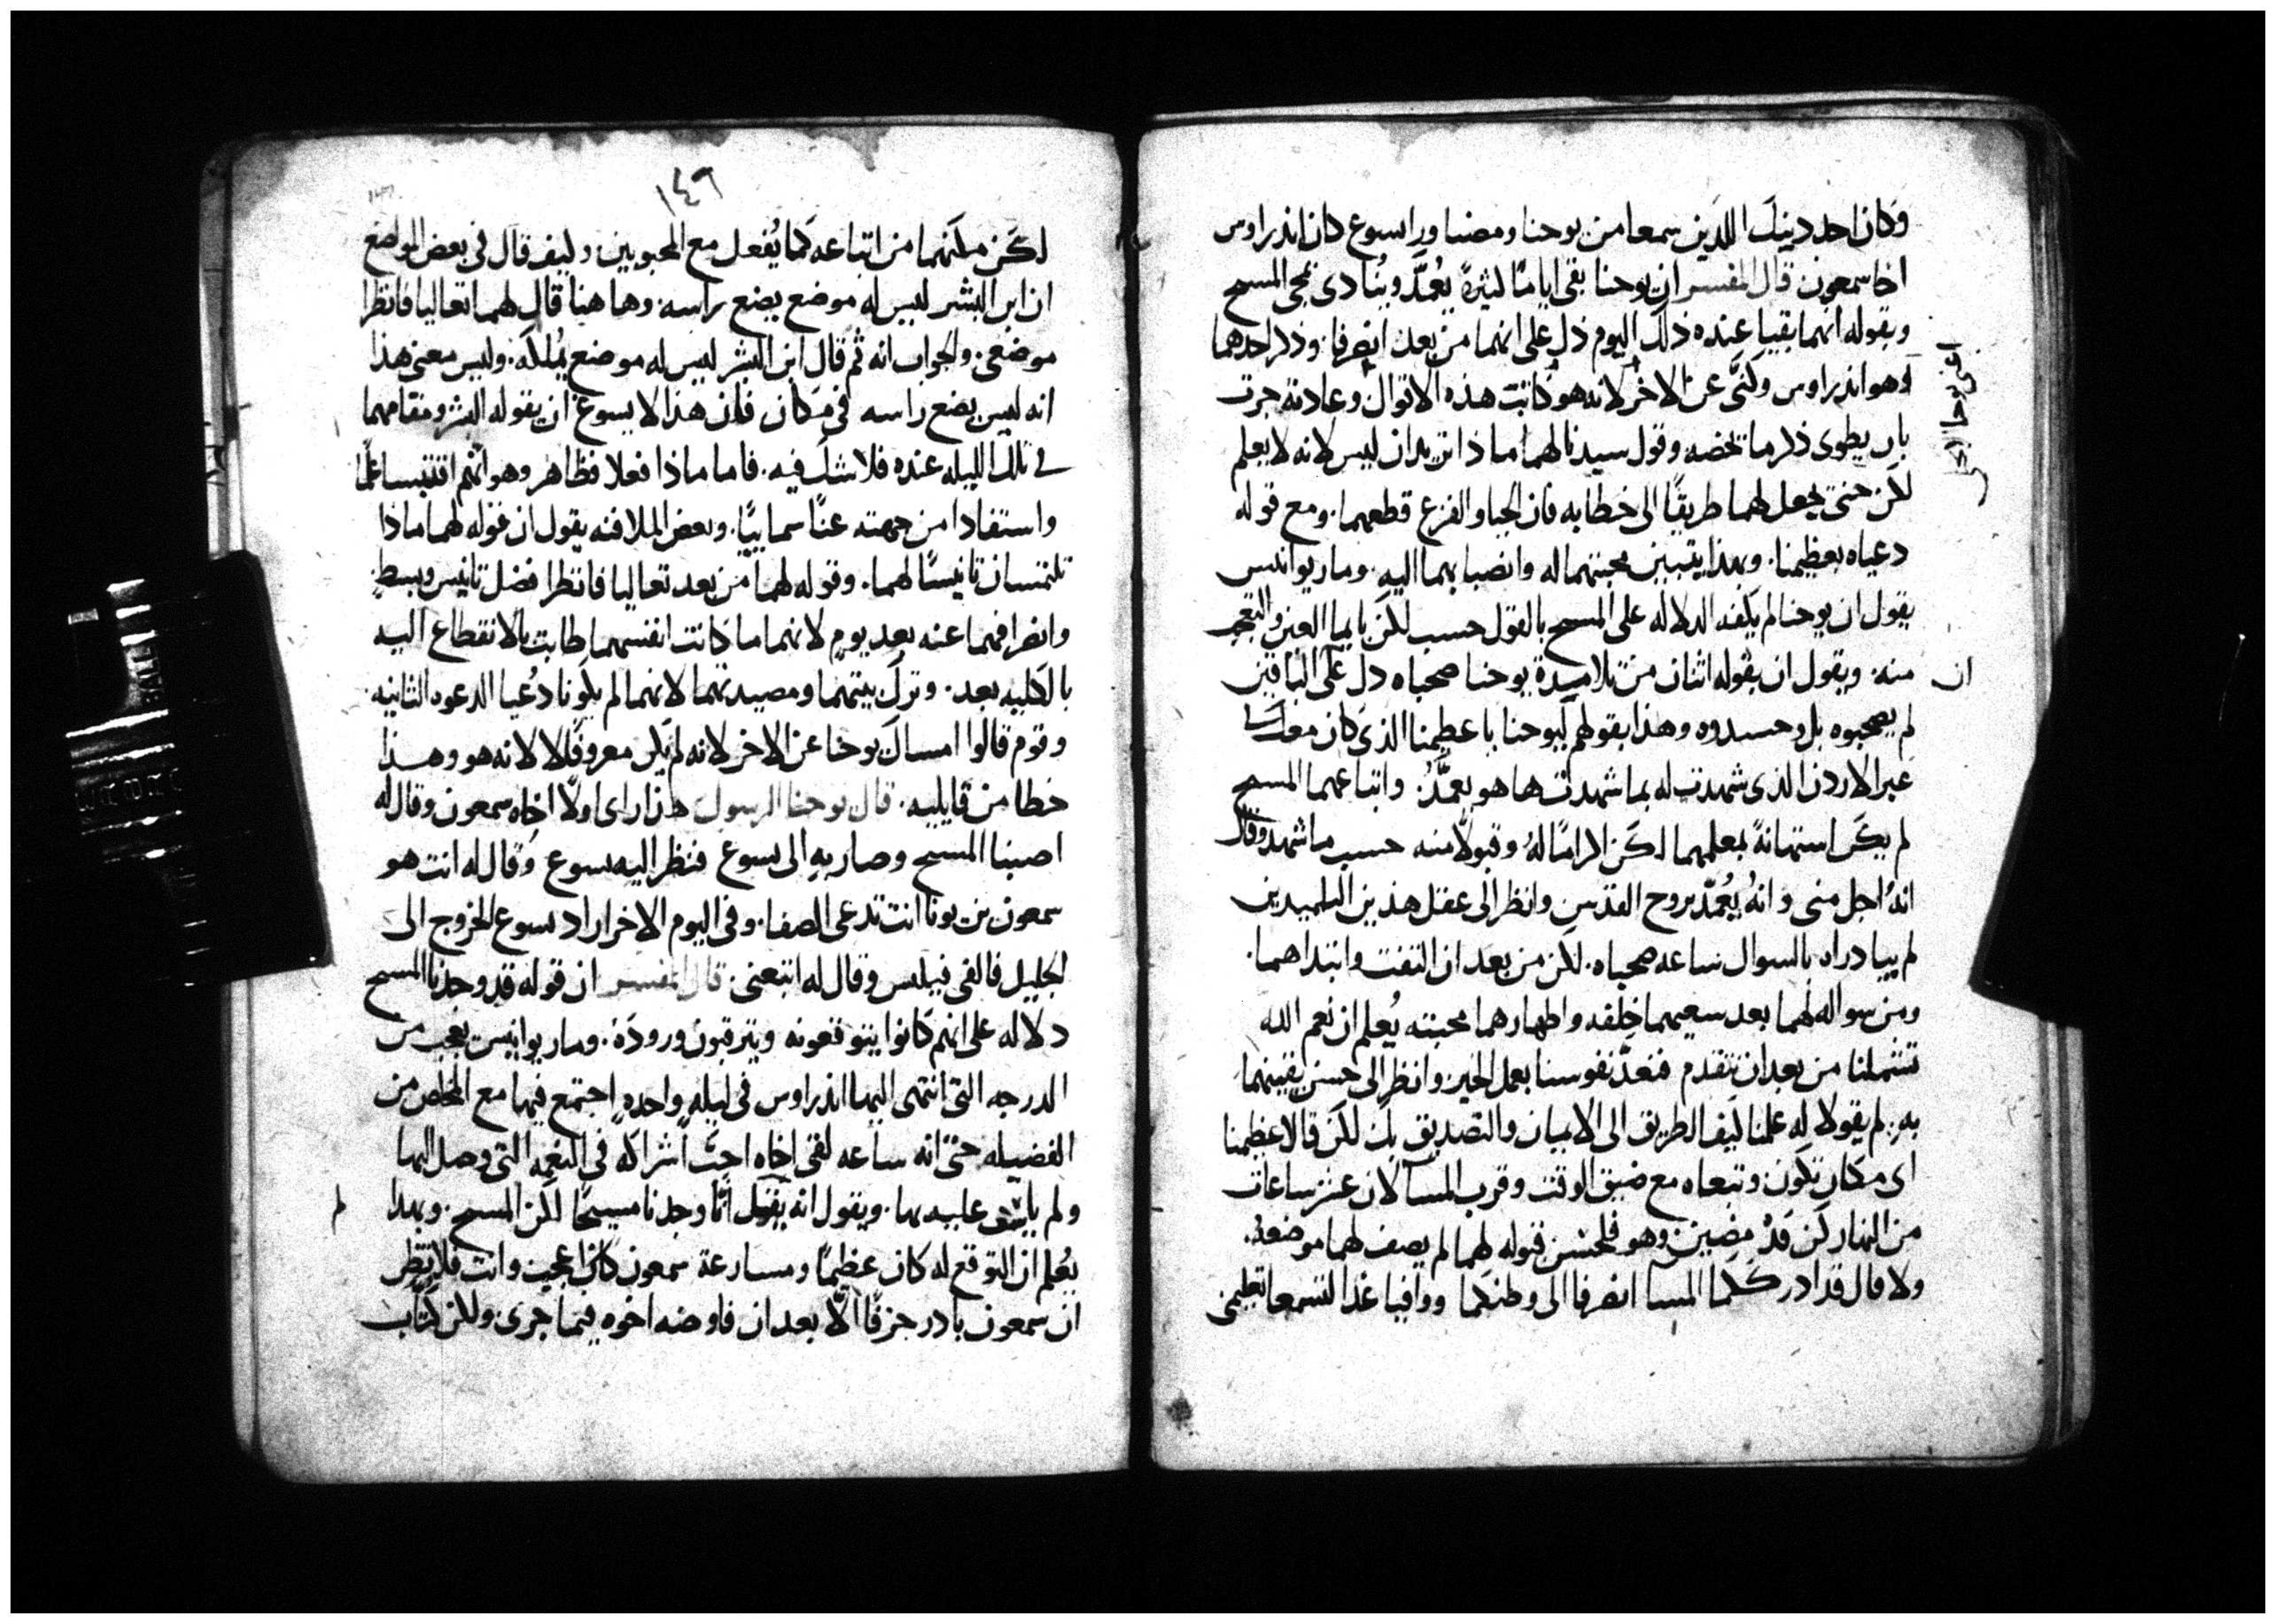 وكان احد دينك اللذين سمعا من يوحنا ومضيا ورا يسوع كان اندراوس
اخا سمعون قال المفسر ان يوحنا بقى اياما كثيرة يعمد وينادى بمجى المسيح
وبقوله انهما بقيا عنده ذلك اليوم دل على انهما من بعد انصرفا وذكر احدهما
وهو اندراوس وكنى عن الاخر لانه هو كاتب هذه الاقوال وعادته جرت
اعنى يوحنا الانجيلى
بان يطوى ذكر ما تخصه وقول سيدنا لهما ماذا تريدان ليس لانه لا يعلم
لكن حتى يجعل لهما طريقا الى خطابه فان الحيا والفزع قطعهما ومع قوله
دعياه بعظيمنا وبهذا يتبين محبتهما له وانصبابهما اليه وماريوانيس
يقول ان يوحنا لم يكفه الدلاله على المسيح بالقول حسب لكن بايما العين والتعجب
منه ويقول ان بقوله اثنان من تلاميذه يوحنا صحباه دل على الباقين
ان
لم يصحبوه بل وحسدوه وهذا بقولهم ليوحنا يا عظيمنا الذى كان معك فى
عبر الاردن الذى شهدت له بما شهدت ها هو يعمد واتباعهما المسيح
لم يكن استهانة بمعلمهما لكن اكراما له وقبولا منه حسب ما شهد وقال
انه اجل منى وانه يعمد بروح القدس وانظر الى عقل هذين التلميذين
لم يبادراه بالسوال ساعه صحباه لكن من بعد ان التفت وابتداهما
ومن سواله لهما بعد سعيهما خلفه واظهارهما محبته يعلم ان نعم الله
تشملنا من بعد ان نتقدم فنعد نفوسنا بعمل الخير وانظر الى حسن يقينهما
به لم يقولا له علمنا كيف الطريق الى الايمان والتصديق بك لكن قالا عظيمنا
اى مكان تكون وتبعاه مع ضيق الوقت وقرب المسا لان عشر ساعات
من النهار كن قد مضين وهو فلحسن قبوله لهما لم يصف لهما موضعه
ولا قال قد ادرككما المسا انصرفا الى وطنكما ووافيا غدا لتسمعا تعليمى
١٤٦
لكن مكنهما من اتباعه كما يفعل مع المحبوبين وكيف قال فى بعض المواضع
ان ابن البشر ليس له موضع يضع راسه وهاهنا قال لهما تعاليا فانظرا
موضعى والجواب انه ثم قال ابن البشر ليس له موضع يملكه وليس معنى هذا
انه ليس يضع راسه فى مكان فان هذا لا يسوغ ان يقوله البشر ومقامهما
فى تلك الليله عنده فلا شك فيه فاما ماذا فعلا فظاهر وهو انهم اقتبسا علما
واستفادا من جهته عنا سماييا وبعض الملافنه يقول ان قوله لهما ماذا
تلتمسان تانيسا لهما وقوله لهما من بعد تعاليا فانظرا فضل تانيس وبسط
وانصرافهما عنه بعد يوم لانهما ما كانت انفسهما طابت بالانقطاع اليه
بالكليه بعد وترك بيتهما ومصيدتهما لانهما لم يكونا دعيا الدعوه الثانيه
وقوم قالوا امساك يوحنا عن الاخر لانه لم يكن معروفا لا لانه هو وهذا
خطا من قايليه قال يوحنا الرسول هذا راى اولا اخاه سمعون وقال له
اصبنا المسيح وصار به الى يسوع فنظر اليه يسوع وقال له انت هو
سمعون بن يونا انت تدعى الصفا وفى اليوم الاخر اراد يسوع الخروج الى
الجليل فالفى فيلبس وقال له اتبعنى قال المفسر ان قوله قد وجدنا المسيح
دلاله على انهم كانوا يتوقعونه ويترقبون وروده وماريوانيس يعجب من
الدرجه التى انتهى اليها اندراوس فى ليله واحده اجتمع فيها مع المخلص من
الفضيله حتى انه ساعه لقى اخاه احب اشراكه فى النعمه التى وصل اليها
ولم عليه بها ويقول انه لم يقول انا وجدنا مسيحا لكن المسيح وبهذا
لم
يعلم ان التوقع له كان عظيما ومسارعة سمعون كانت عجيب وانت فلا تنظر
ان سمعون بادر جزفا الا بعد ان فاوضه اخوه فيما جرى ولكن كتاب